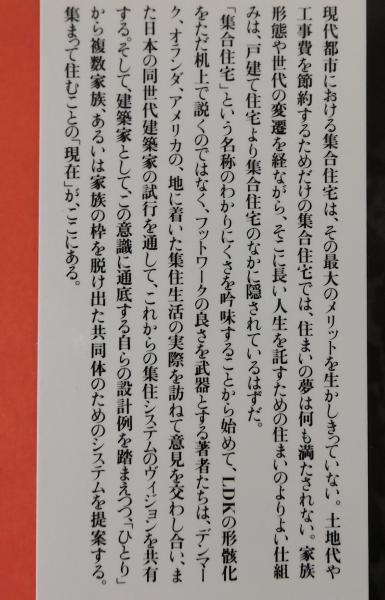 現代都市における集合住宅は、その最大のメリットを生かしきっていない。土地代や
工事費を節約するためだけの集合住宅では、住まいの夢は何も満たされない。家族
形態や世代の変遷を経ながら、そこに長い人生を託すための住まいのよりよい仕組
みは、戸建て住宅より集合住宅のなかに隠されているはずだ。
「集合住宅」という名称のわかりにくさを吟味することから始めて、LDKの形骸化
をただ机上で説くのではなく、フットワークの良さを武器とする著者たちは、デンマー
ク、オランダ、アメリカの、地に着いた集住生活の実際を訪ねて意見を交わし合い、ま
た日本の同世代建築家の試行を通して、これからの集住システムのヴィジョンを共有
する。そして、建築家として、この意識に通底する自らの設計例を踏まえつつ、「ひとり」
から複数家族、あるいは家族の枠を脱け出た共同体のためのシステムを提案する。
集まって住むことの「現在」が、ここにある。